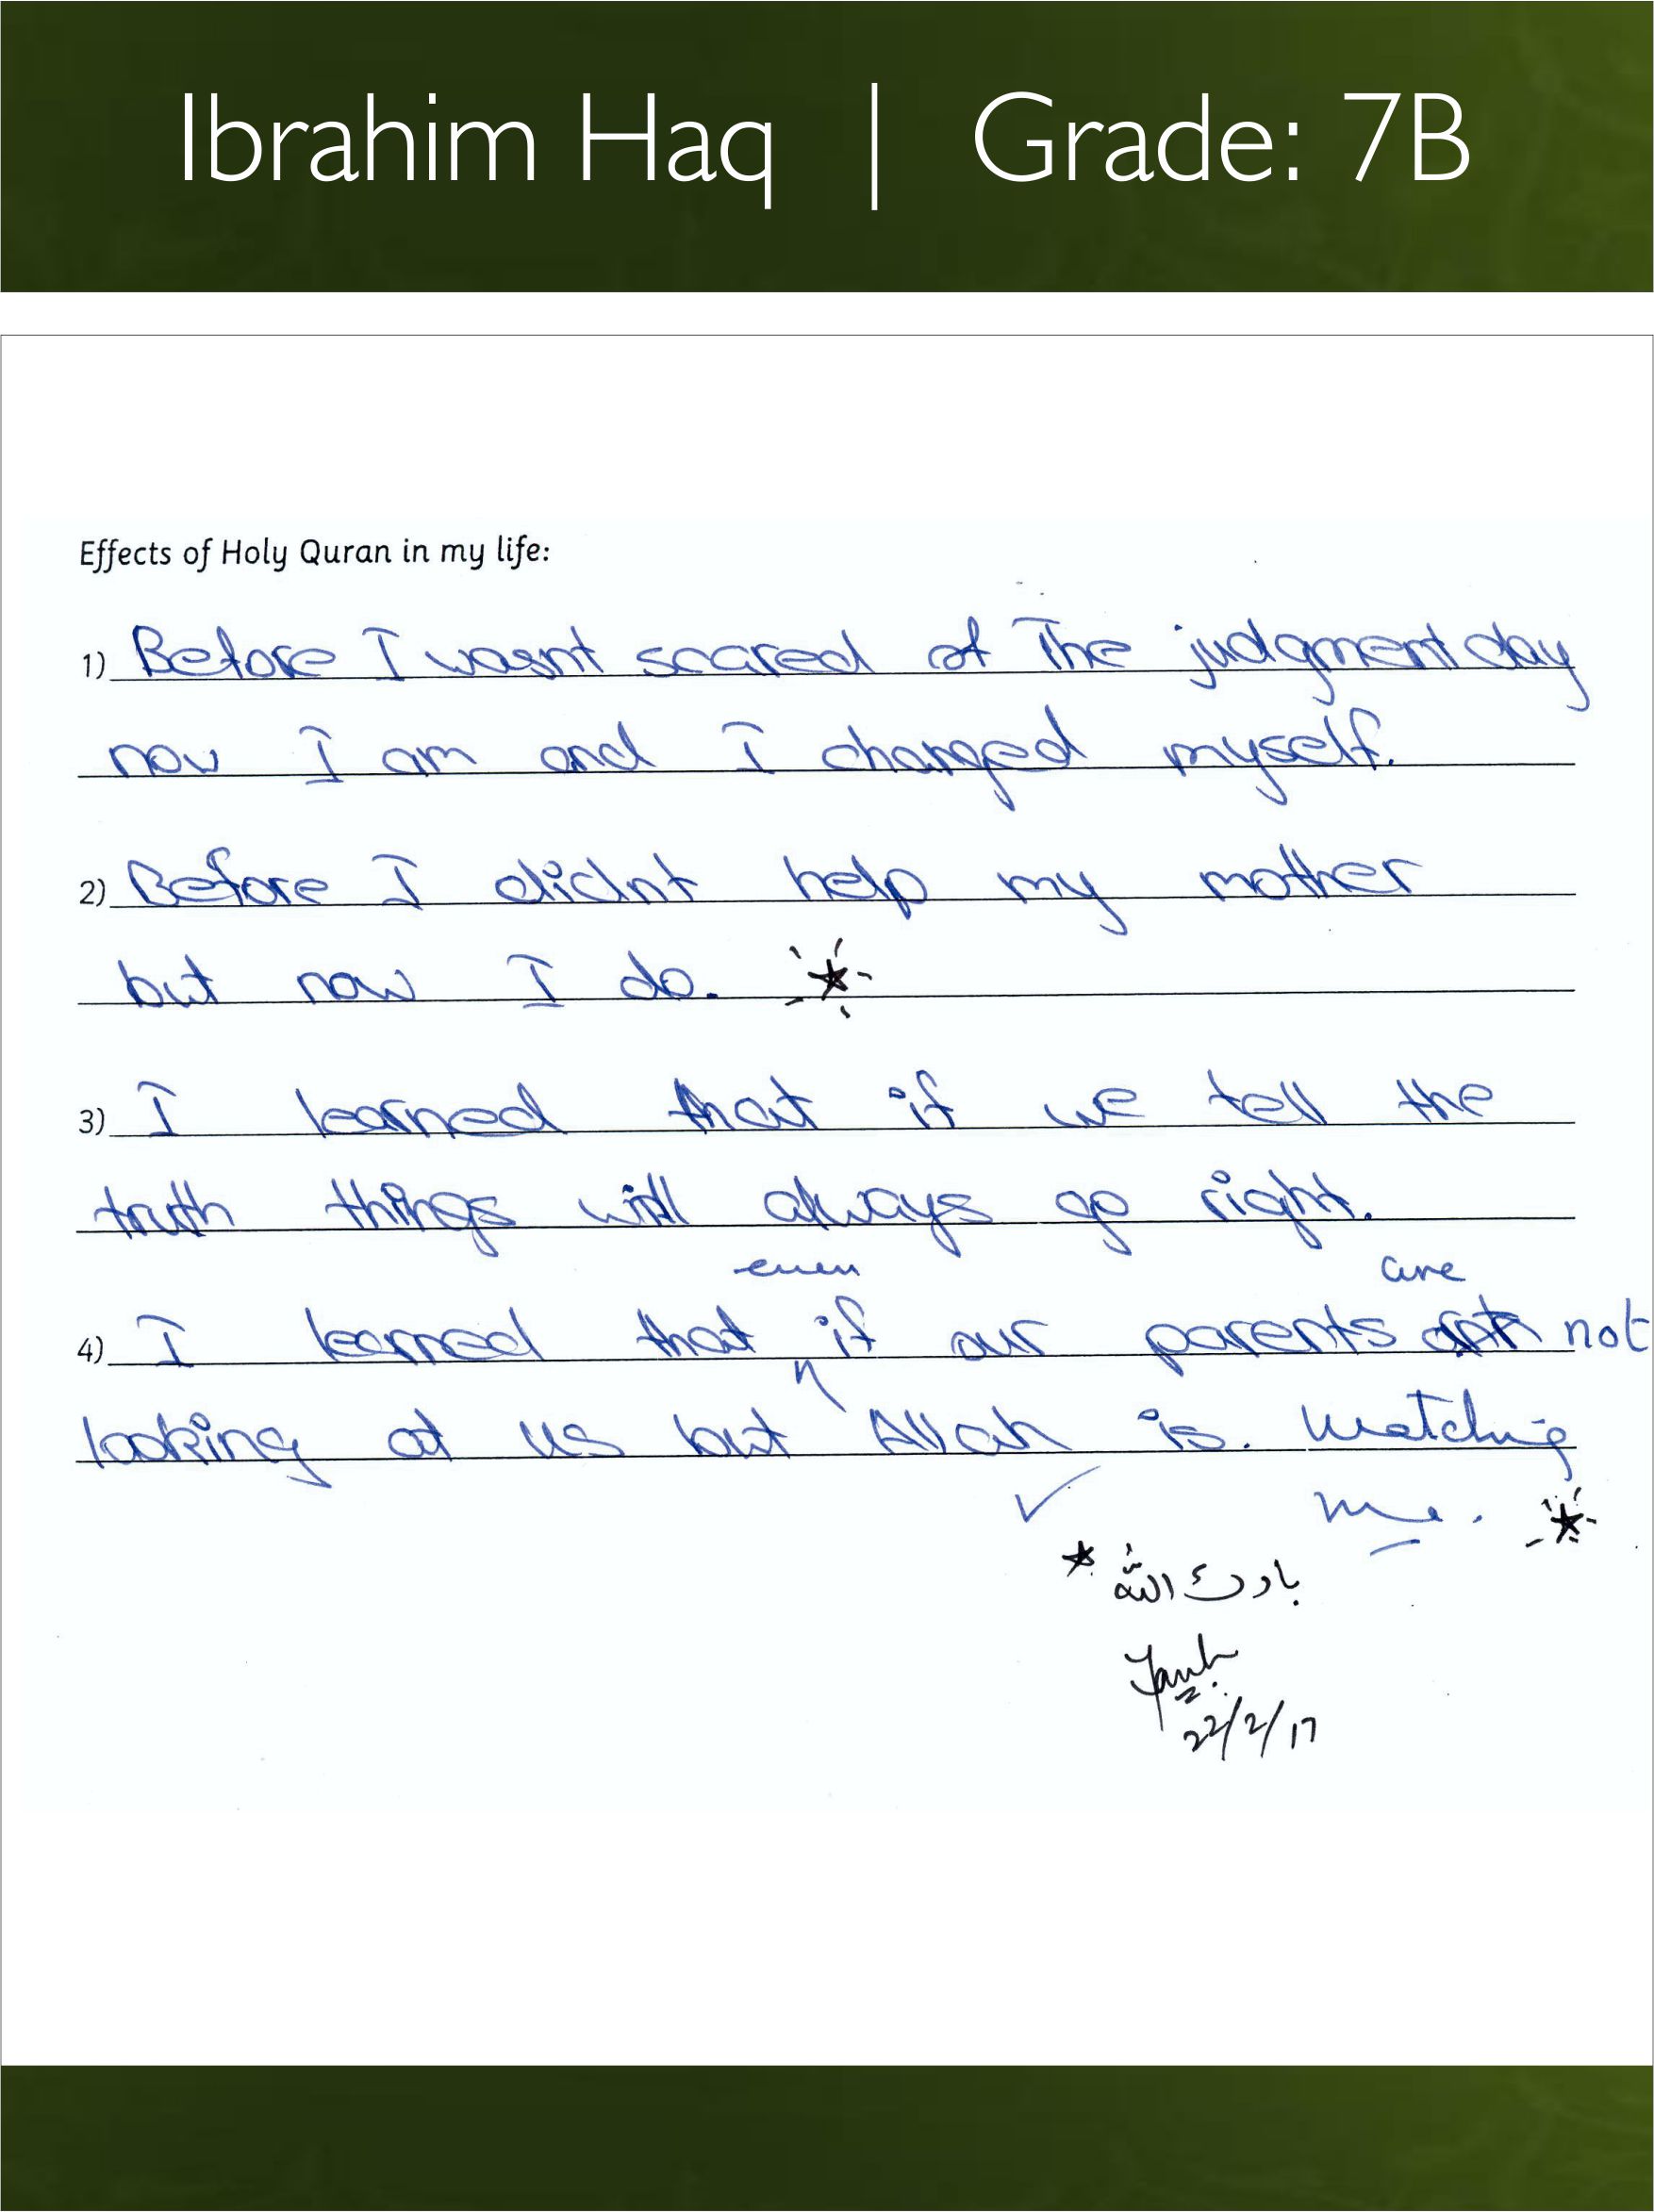 Ibrahim Haq | Grade: 7B
Effects of Holy Quran in my life:
1) Before I wasnt scared of The judgment day
now I am and I changed myself.
2) Before I didnt help my mother
but now I do.
3) I learned that if we tell the
truth things will always go right.
even are
4) I learned that if our parents not
looking at us but Allah is. watching
me.
بارك الله
22/2/17